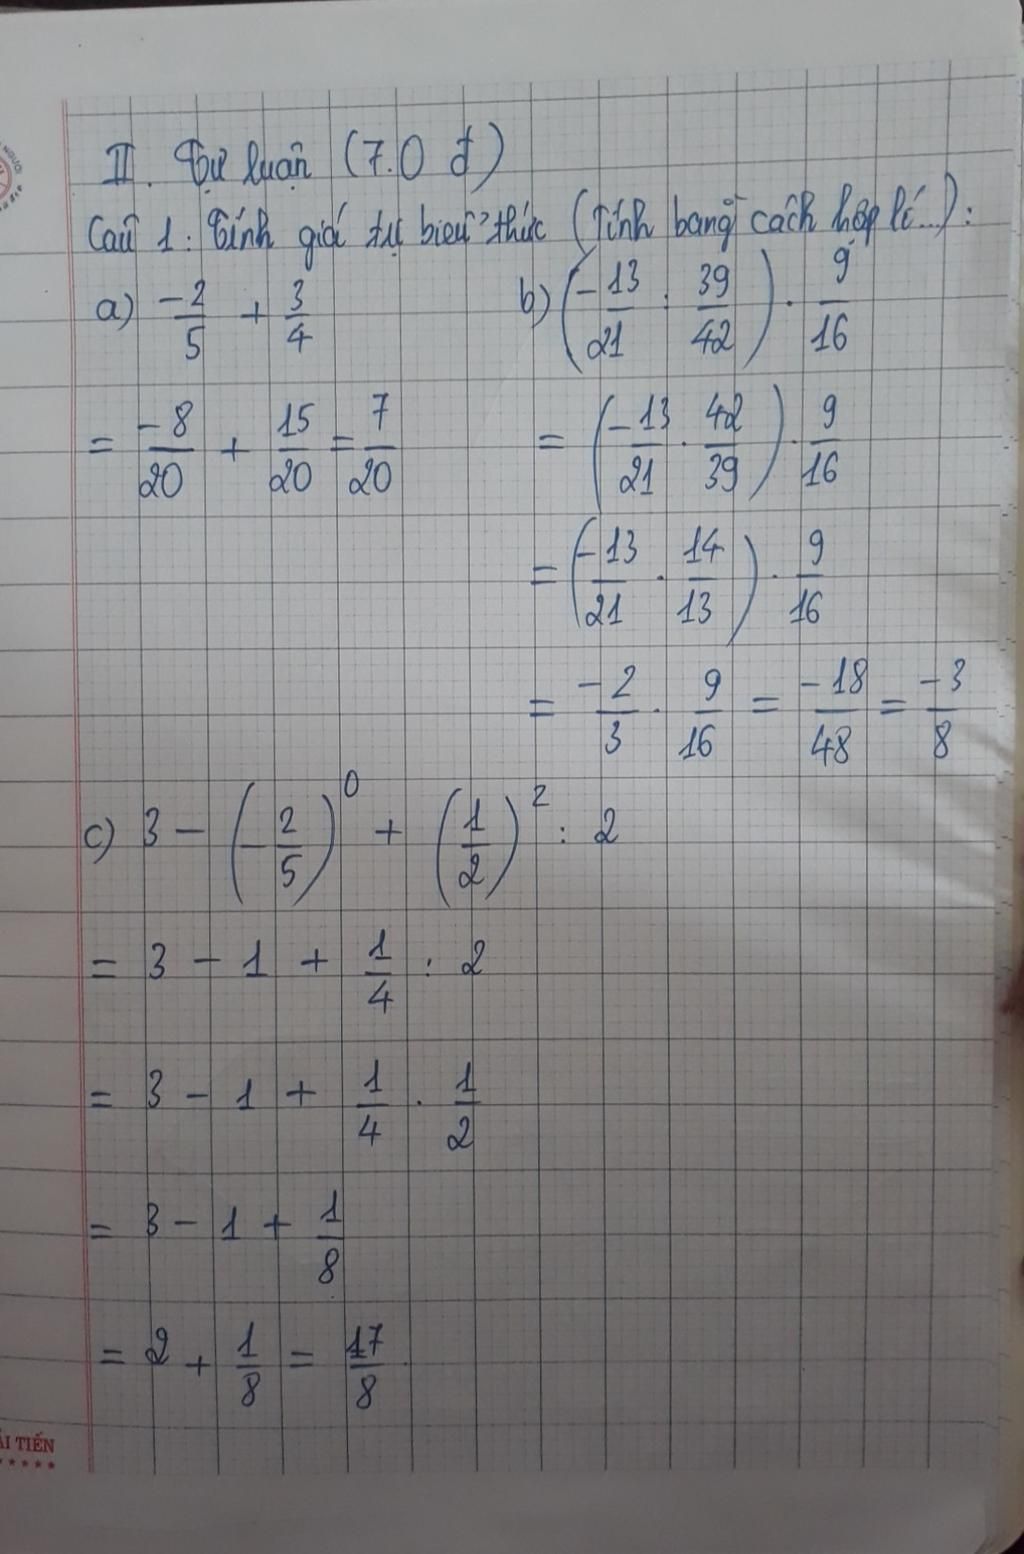 II. Tự luận (7.0 đ)
Câu 1: Tính giá trị biểu thức (Tính bằng cách hợp lí...):
a) -2/5 + 3/4
= -8/20 + 15/20 = 7/20
b) (-13/21 : 39/42) . 9/16
= (-13/21 . 42/39) . 9/16
= (-13/21 . 14/13) . 9/16
= -2/3 . 9/16 = -18/48 = -3/8
c) 3 - (-2/5)^0 + (1/2)^2 : 2
= 3 - 1 + 1/4 : 2
= 3 - 1 + 1/4 . 1/2
= 3 - 1 + 1/8
= 2 + 1/8 = 17/8
ẢI TIẾN